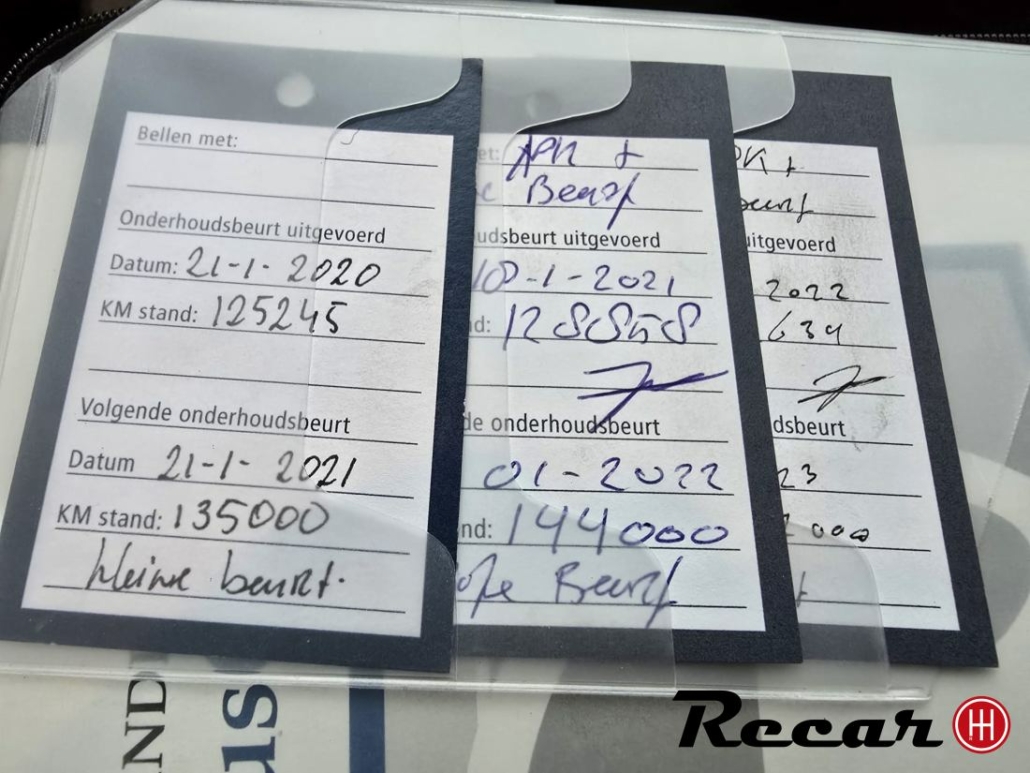 Bellen met:
Onderhoudsbeurt uitgevoerd
Datum: 21-1-2020
KM stand: 125245
Volgende onderhoudsbeurt
Datum 21-1-2021
KM stand: 135000
kleine beurt.
et: APK +
e Beurt
udsbeurt uitgevoerd
-1-2021
d: 128858
de onderhoudsbeurt
01-2022
nd: 144000
ote Beurt
PK +
beurt
uitgevoerd
2022
634
dsbeurt
23
000
t
AND
us
Recar
H